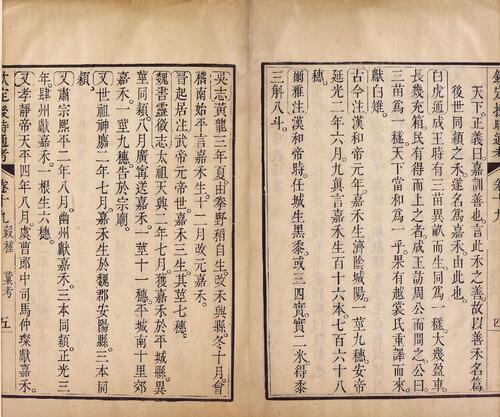 天下。正義曰。嘉訓善也。言此禾之善。故以善禾名篇
後世同穎之禾。遂名爲嘉禾。由此也。
白虎通。成王時。有三苗異畝而生。同爲一穟。大幾盈車。
長幾充箱。民有得而上之者。成王訪周公而問之。公曰。
三苗爲一穟。天下當和爲一乎。果有越裳氏重譯而來。
獻白雉。
古今注。漢和帝元年。嘉禾生濟陰城陽。一莖九穗。安帝
延光二年六月。九眞言嘉禾生百十六本。七百六十八
穗。
爾雅注。漢和帝時。任城生黑黍。或三四實。實二米。得黍
三斛八斗。
欽定授時通考
四
吳志。黃龍三年。夏。由拳野稻自生。改禾興縣。冬十月。會
稽南始平言嘉禾生。十二月。改元嘉禾。
晉起居注。武帝元帝世。嘉禾三生。其莖七穗。
魏書靈徵志。太祖天興二年七月。獲嘉禾於平城縣。異
莖同穎。八月。廣甯送嘉禾。一莖十一穗。平城南十里郊
嘉禾。一莖九穗。告於宗廟。
又世祖神䴥二年七月。嘉禾生於魏郡安陽縣。三本同
穎。
又肅宗熙平二年八月。幽州獻嘉禾。三本同穎。正光三
年。肆州獻嘉禾。一根生六穗。
又孝靜帝天平四年八月。虞曹郎中司馬仲璨獻嘉禾。
欽定授時通考
卷十九
穀種
彙考
五